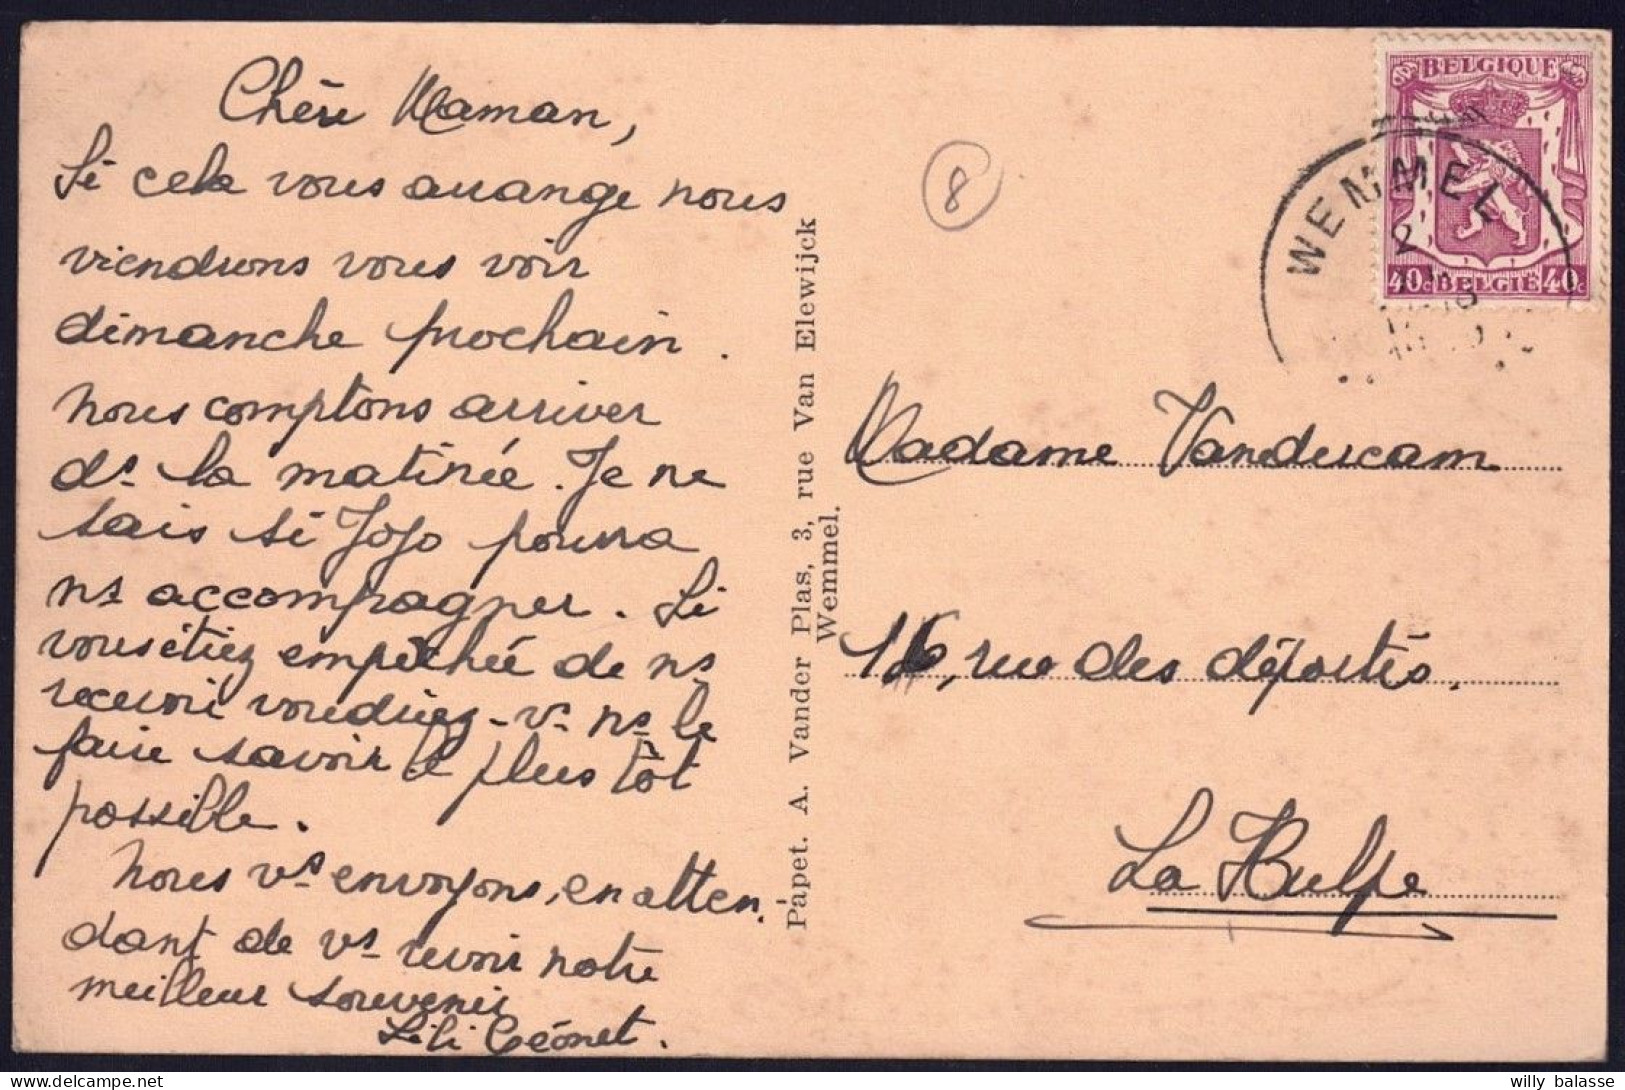 Chère Maman,
Si cela vous arrange nous
viendrons vous voir
dimanche prochain.
Nous comptons arriver
ds la matinée. Je ne
sais si Jojo pourra
ns accompagner. Si
vous étiez empêchée de ns
recevoir voudriez-vs ns le
faire savoir le plus tôt
possible.
Nous vs envoyons, en atten-
dant de vs revoir notre
meilleur souvenir
Lili
Papet. A. Vander Plas, 3, rue Van Elewijck
Wemmel.
8
BELGIQUE
40c BELGIË 40c
WEMMEL
Madame Vanducam
16, rue des déportés.
La Hulpe
willy balasse